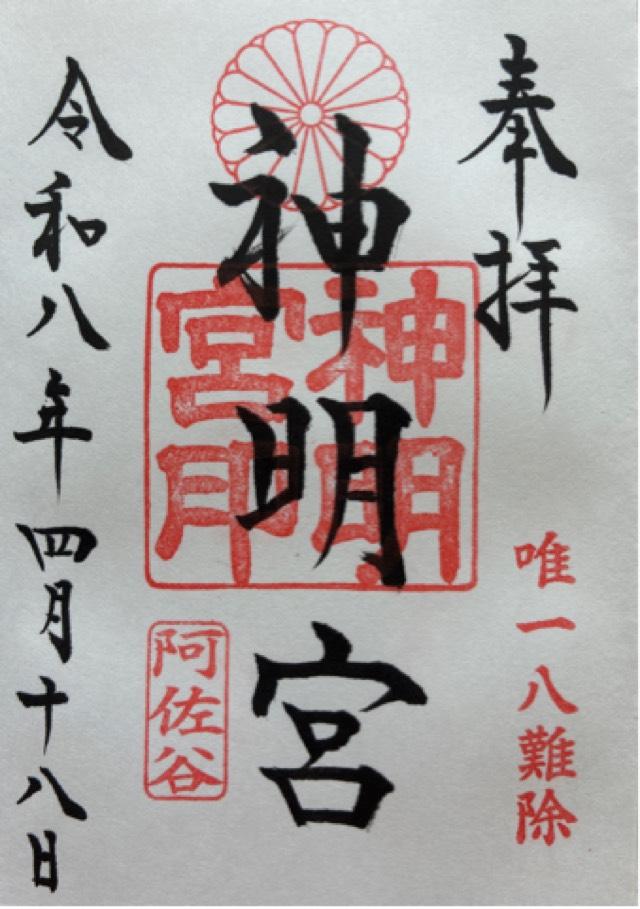 奉拝
唯一八難除
神明宮
神明
宮印
阿佐谷
令和八年四月十八日